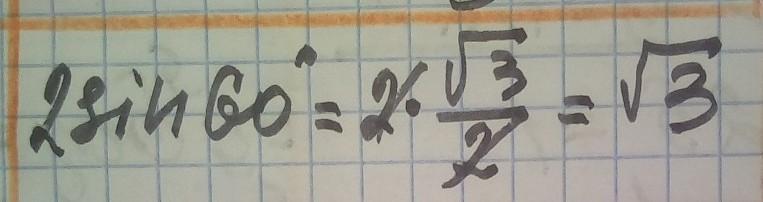 2sin60° = 2 · √3/2 = √3